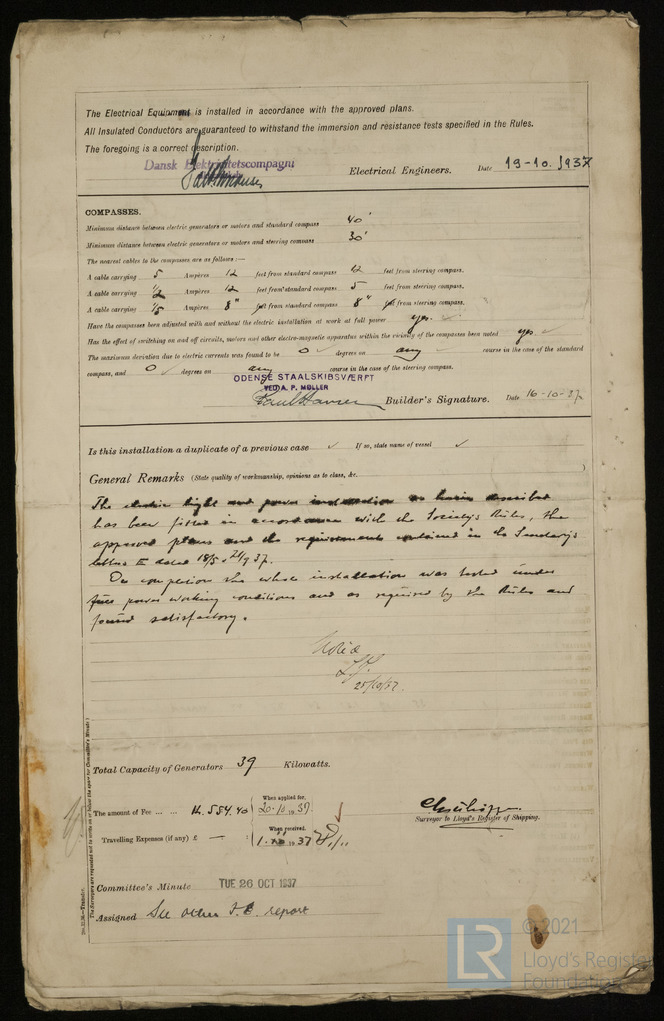 The Electrical Equipment is installed in accordance with the approved plans.
All Insulated Conductors are guaranteed to withstand the immersion and resistance tests specified in the Rules.
The foregoing is a correct description.
Dansk Elektricitetscompagni
Electrical Engineers. Date 19-10.1937
COMPASSES.
Minimum distance between electric generators or motors and standard compass 40'
Minimum distance between electric generators or motors and steering compass 30'
The nearest cables to the compasses are as follows:—
A cable carrying 5 Ampères 12 feet from standard compass 12 feet from steering compass.
A cable carrying 1/2 Ampères 12 feet from standard compass 5 feet from steering compass.
A cable carrying 1/5 Ampères 8" feet from standard compass 8" feet from steering compass.
Have the compasses been adjusted with and without the electric installation at work at full power yes. ✓
Has the effect of switching on and off circuits, motors and other electro-magnetic apparatus within the vicinity of the compasses been noted yes ✓
The maximum deviation due to electric currents was found to be 0 ✓ degrees on any ✓ course in the case of the standard
compass, and 0 ✓ degrees on any course in the case of the steering compass.
ODENSE STAALSKIBSVÆRFT
VED A. P. MØLLER
Builder's Signature. Date 16-10-37
Is this installation a duplicate of a previous case ✓ If so, state name of vessel ✓
General Remarks (State quality of workmanship, opinions as to class, &c.
The electric light and power installation as herein described
has been fitted in accordance with the Society's Rules, the
approved plans and the requirements contained in the Secretary's
letters E dated 18/5 & 21/9 37.
On completion the whole installation was tested under
full power working conditions and as required by the Rules and
found satisfactory.
Noted
25/10/37.
Total Capacity of Generators 39 Kilowatts.
The amount of Fee ... ... Kr. 554.40 When applied for, 20.10.1937.
Travelling Expenses (if any) £ — When received, 1. 1937
Surveyor to Lloyd's Register of Shipping.
Committee's Minute TUE 26 OCT 1937
Assigned See other F.E. report
The Surveyors are requested not to write on or below the space for Committee's Minute.
Transfer.
LR
© 2021
Lloyd's Register
Foundation